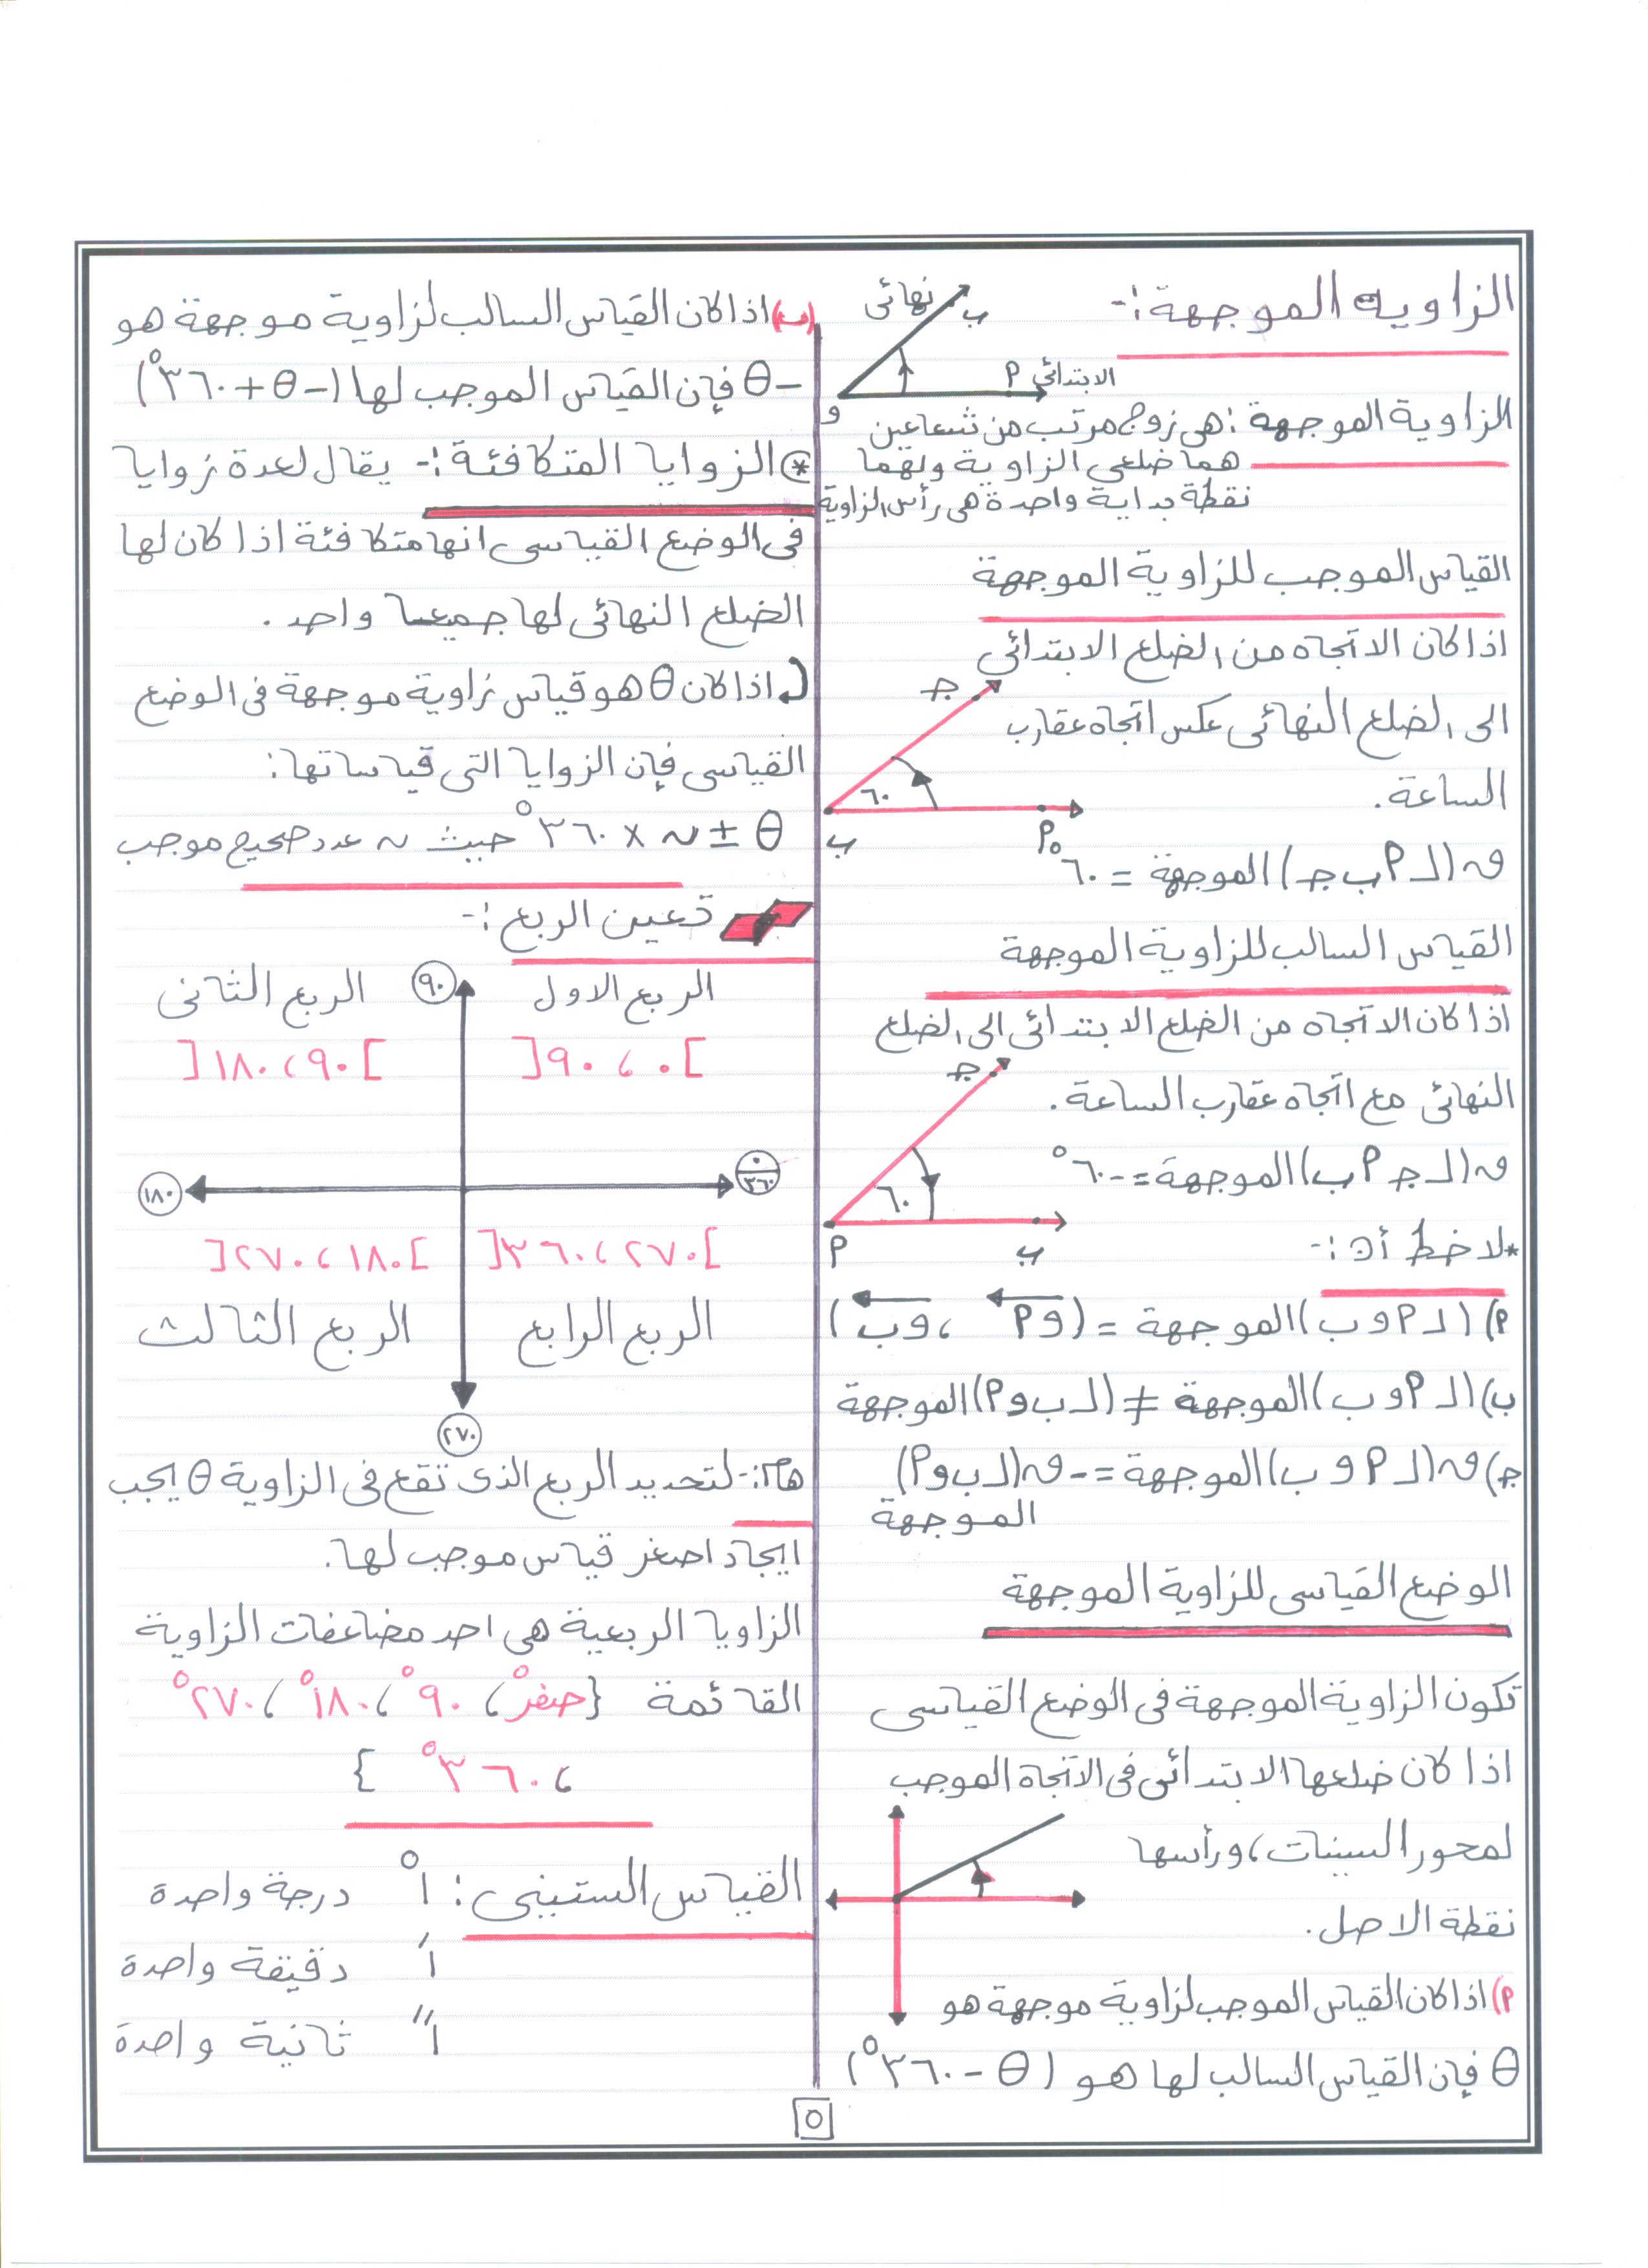 الزاويه الموجهة :-
نهائى
ب
الابتدائى
P
و
الزاوية الموجهة : هى زوج مرتب من شعاعين
هما ضلعى الزاوية ولهما
نقطة بداية واحدة هى رأس الزاوية
القياس الموجب للزاوية الموجهة
اذا كان الاتجاه من الضلع الابتدائى
الى الضلع النهائى عكس اتجاه عقارب
الساعة.
جـ
٦٠
ب
P
ق (ل P ب جـ) الموجهة = ٦٠°
القياس السالب للزاوية الموجهة
اذا كان الاتجاه من الضلع الابتدائى الى الضلع
النهائى مع اتجاه عقارب الساعة.
جـ
ق (ل جـ P ب) الموجهة = -٦٠°
٦٠
P
ب
* لاحظ أن :-
P) (ل P و ب) الموجهة = (و P ، و ب)
ب) (ل P و ب) الموجهة ≠ (ل ب و P) الموجهة
جـ) ق (ل P و ب) الموجهة = - ق (ل ب و P)
الموجهة
الوضع القياسى للزاوية الموجهة
تكون الزاوية الموجهة فى الوضع القياسى
اذا كان ضلعها الابتدائى فى الاتجاه الموجب
لمحور السينات، ورأسها
نقطة الاصل.
P) اذا كان القياس الموجب لزاوية موجهة هو
θ فإن القياس السالب لها هو (θ - ٣٦٠°)
ب) اذا كان القياس السالب لزاوية موجهة هو
-θ فإن القياس الموجب لها (-θ + ٣٦٠°)
* الزوايا المتكافئة :- يقال لعدة زوايا
فى الوضع القياسى انها متكافئة اذا كان لها
الضلع النهائى لها جميعا واحد .
اذا كان θ هو قياس زاوية موجهة فى الوضع
القياسى فإن الزوايا التى قياساتها:
θ ± ن × ٣٦٠° حيث ن عدد صحيح موجب
تعين الربع :-
الربع الاول
٩٠
الربع الثانى
]٠ ، ٩٠[
]٩٠ ، ١٨٠[
٠
٣٦٠
١٨٠
]٢٧٠ ، ٣٦٠[
]١٨٠ ، ٢٧٠[
الربع الرابع
الربع الثالث
٢٧٠
هام:- لتحديد الربع الذى تقع فى الزاوية θ يجب
ايجاد اصغر قياس موجب لها.
الزاويا الربعية هى احد مضاعفات الزاوية
القائمة {صفر° ، ٩٠° ، ١٨٠° ، ٢٧٠°
، ٣٦٠° }
القياس الستينى : ١° درجة واحدة
١′ دقيقة واحدة
١″ ثانية واحدة
٥